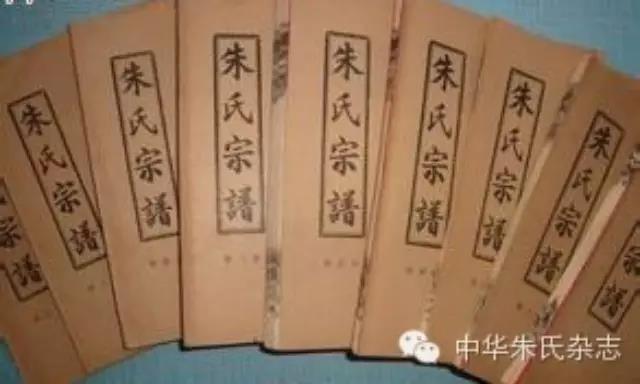 宗譜
朱氏宗譜
朱氏宗譜
朱氏宗譜
朱氏宗譜
朱氏宗譜
朱氏宗譜
朱氏宗譜
宗譜
中华朱氏杂志